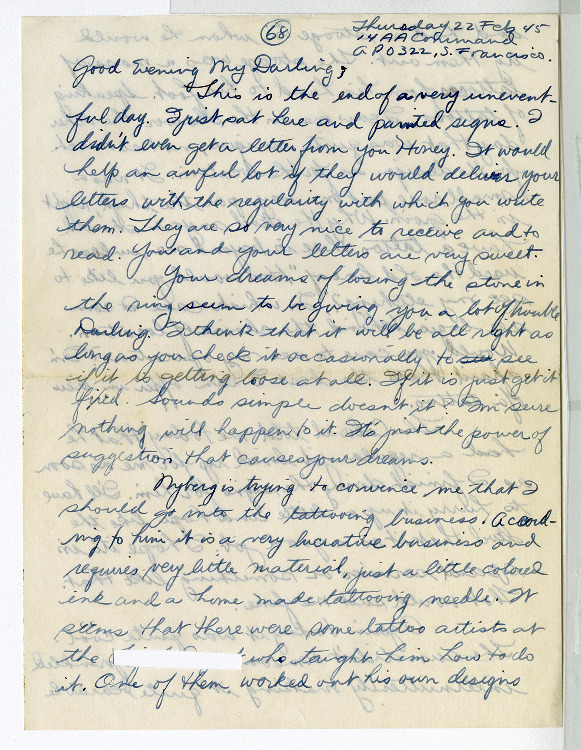 68
Thursday 22 Feb 45
14 AA Command
A P O 322, S. Francisco.
Good Evening My Darling;
This is the end of a very unevent-
ful day. I just sat here and painted signs. I
didn't even get a letter from you Honey. It would
help an awful lot if they would deliver your
letters with the regularity with which you write
them. They are so very nice to receive and to
read. You and your letters are very sweet.
Your dreams of losing the stone in
the ring seem to be giving you a lot of trouble
Darling. I think that it will be all right as
long as you check it occasionally to see
if it is getting loose at all. If it is just get it
fixed. Sounds simple doesn't it. I'm sure
nothing will happen to it. It's just the power of
suggestion that causes your dreams.
Nyberg is trying to convince me that I
should go into the tattooing business. Accord-
ing to him it is a very lucrative business and
requires very little material, just a little colored
ink and a home made tattooing needle. It
seems that there were some tattoo artists at
the who taught him how to do
it. One of them worked out his own designs